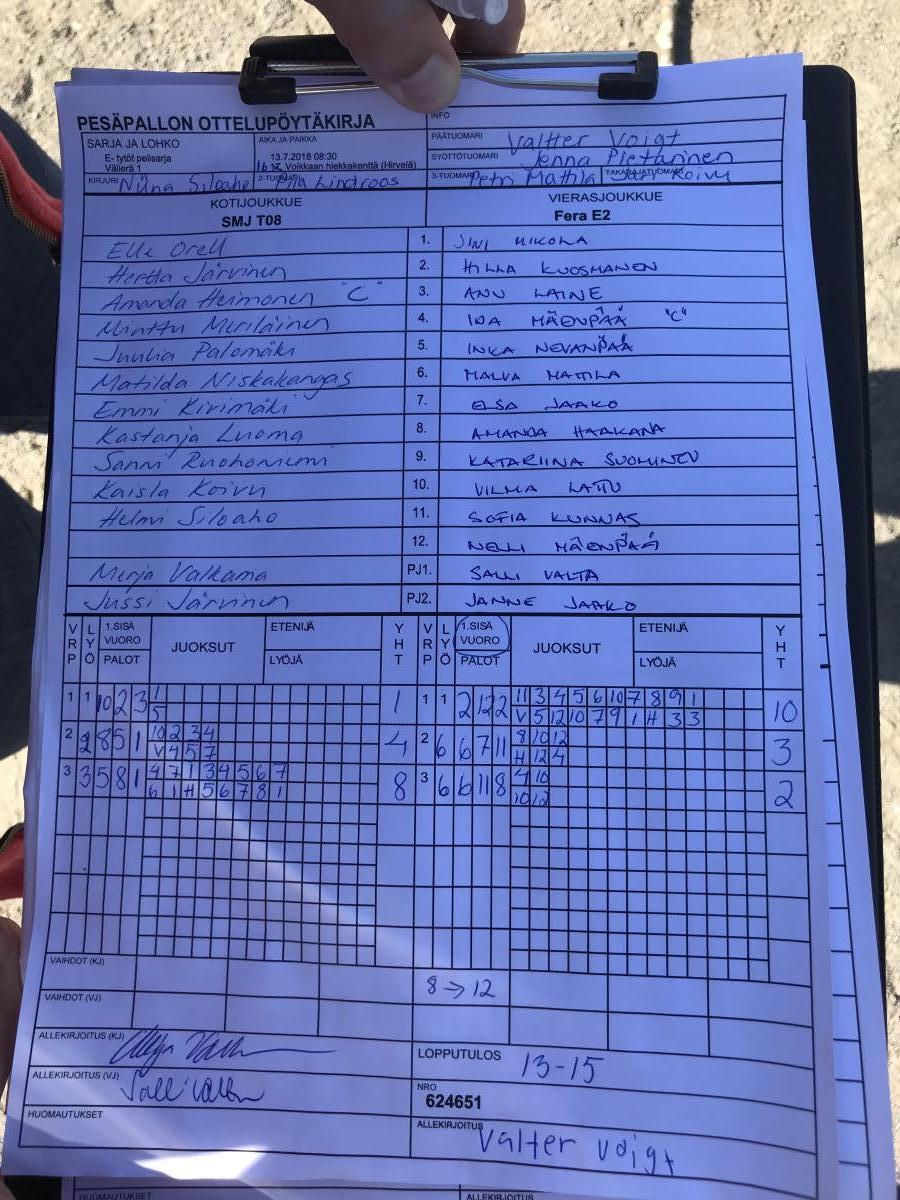 PESÄPALLON OTTELUPÖYTÄKIRJA
INFO
SARJA JA LOHKO
E- tytöt pelisarja
Välierä 1
AIKA JA PAIKKA
13.7.2018 08:30
Voikkaan hiekkakenttä (Hirvelä)
PÄÄTUOMARI Valtter Voigt
SYÖTTÖTUOMARI Jenna Pietarinen
KIRJURI Niina Siloaho
2-TUOMARI Piia Lindroos
3-TUOMARI Petri Mattila
TAKARAJATUOMARI Sari Koivu
KOTIJOUKKUE VIERASJOUKKUE
SMJ T08 Fera E2
Elle Orell 1. JINI MIKOLA
Hertta Järvinen 2. HILLA KUOSMANEN
Amanda Heimonen "C" 3. ANU LAINE
Minttu Meriläinen 4. IDA MÄENPÄÄ "C"
Juulia Palomäki 5. INKA NEVANPÄÄ
Matilda Niskakangas 6. MALVA MATTILA
Emmi Kivimäki 7. ELSA JAAKO
Kastanja Luoma 8. AMANDA HAAKANA
Sanni Ruohoniemi 9. KATARIINA SUOMINEN
Kaisla Koivu 10. VILMA LATTU
Helmi Siloaho 11. SOFIA KUNNAS
12. NELLI MÄENPÄÄ
Merja Valkama PJ1. SALLI VALTA
Jussi Järvinen PJ2. JANNE JAAKO
VRP LYÖ 1.SISÄ VUORO PALOT JUOKSUT ETENIJÄ LYÖJÄ YHT VRP LYÖ 1.SISÄ VUORO PALOT JUOKSUT ETENIJÄ LYÖJÄ YHT
1 1 10 2 3 1 1 1 1 2 12 2 11 3 4 5 6 10 7 8 9 1 10
5 V 5 12 10 7 9 1 H 3 3
2 2 8 5 1 10 2 3 4 4 2 6 6 7 11 8 10 12 3
V 4 5 7 H 12 4
3 3 5 8 1 4 7 1 3 4 5 6 7 8 3 6 6 11 8 4 10 2
6 1 H 5 6 7 8 1 10 12
VAIHDOT (KJ)
8 → 12
VAIHDOT (VJ)
ALLEKIRJOITUS (KJ)
LOPPUTULOS 13-15
ALLEKIRJOITUS (VJ)
NRO
624651
HUOMAUTUKSET
ALLEKIRJOITUS Valtter Voigt
HUOMAUTUKSET
ALLEKIRJOITUS